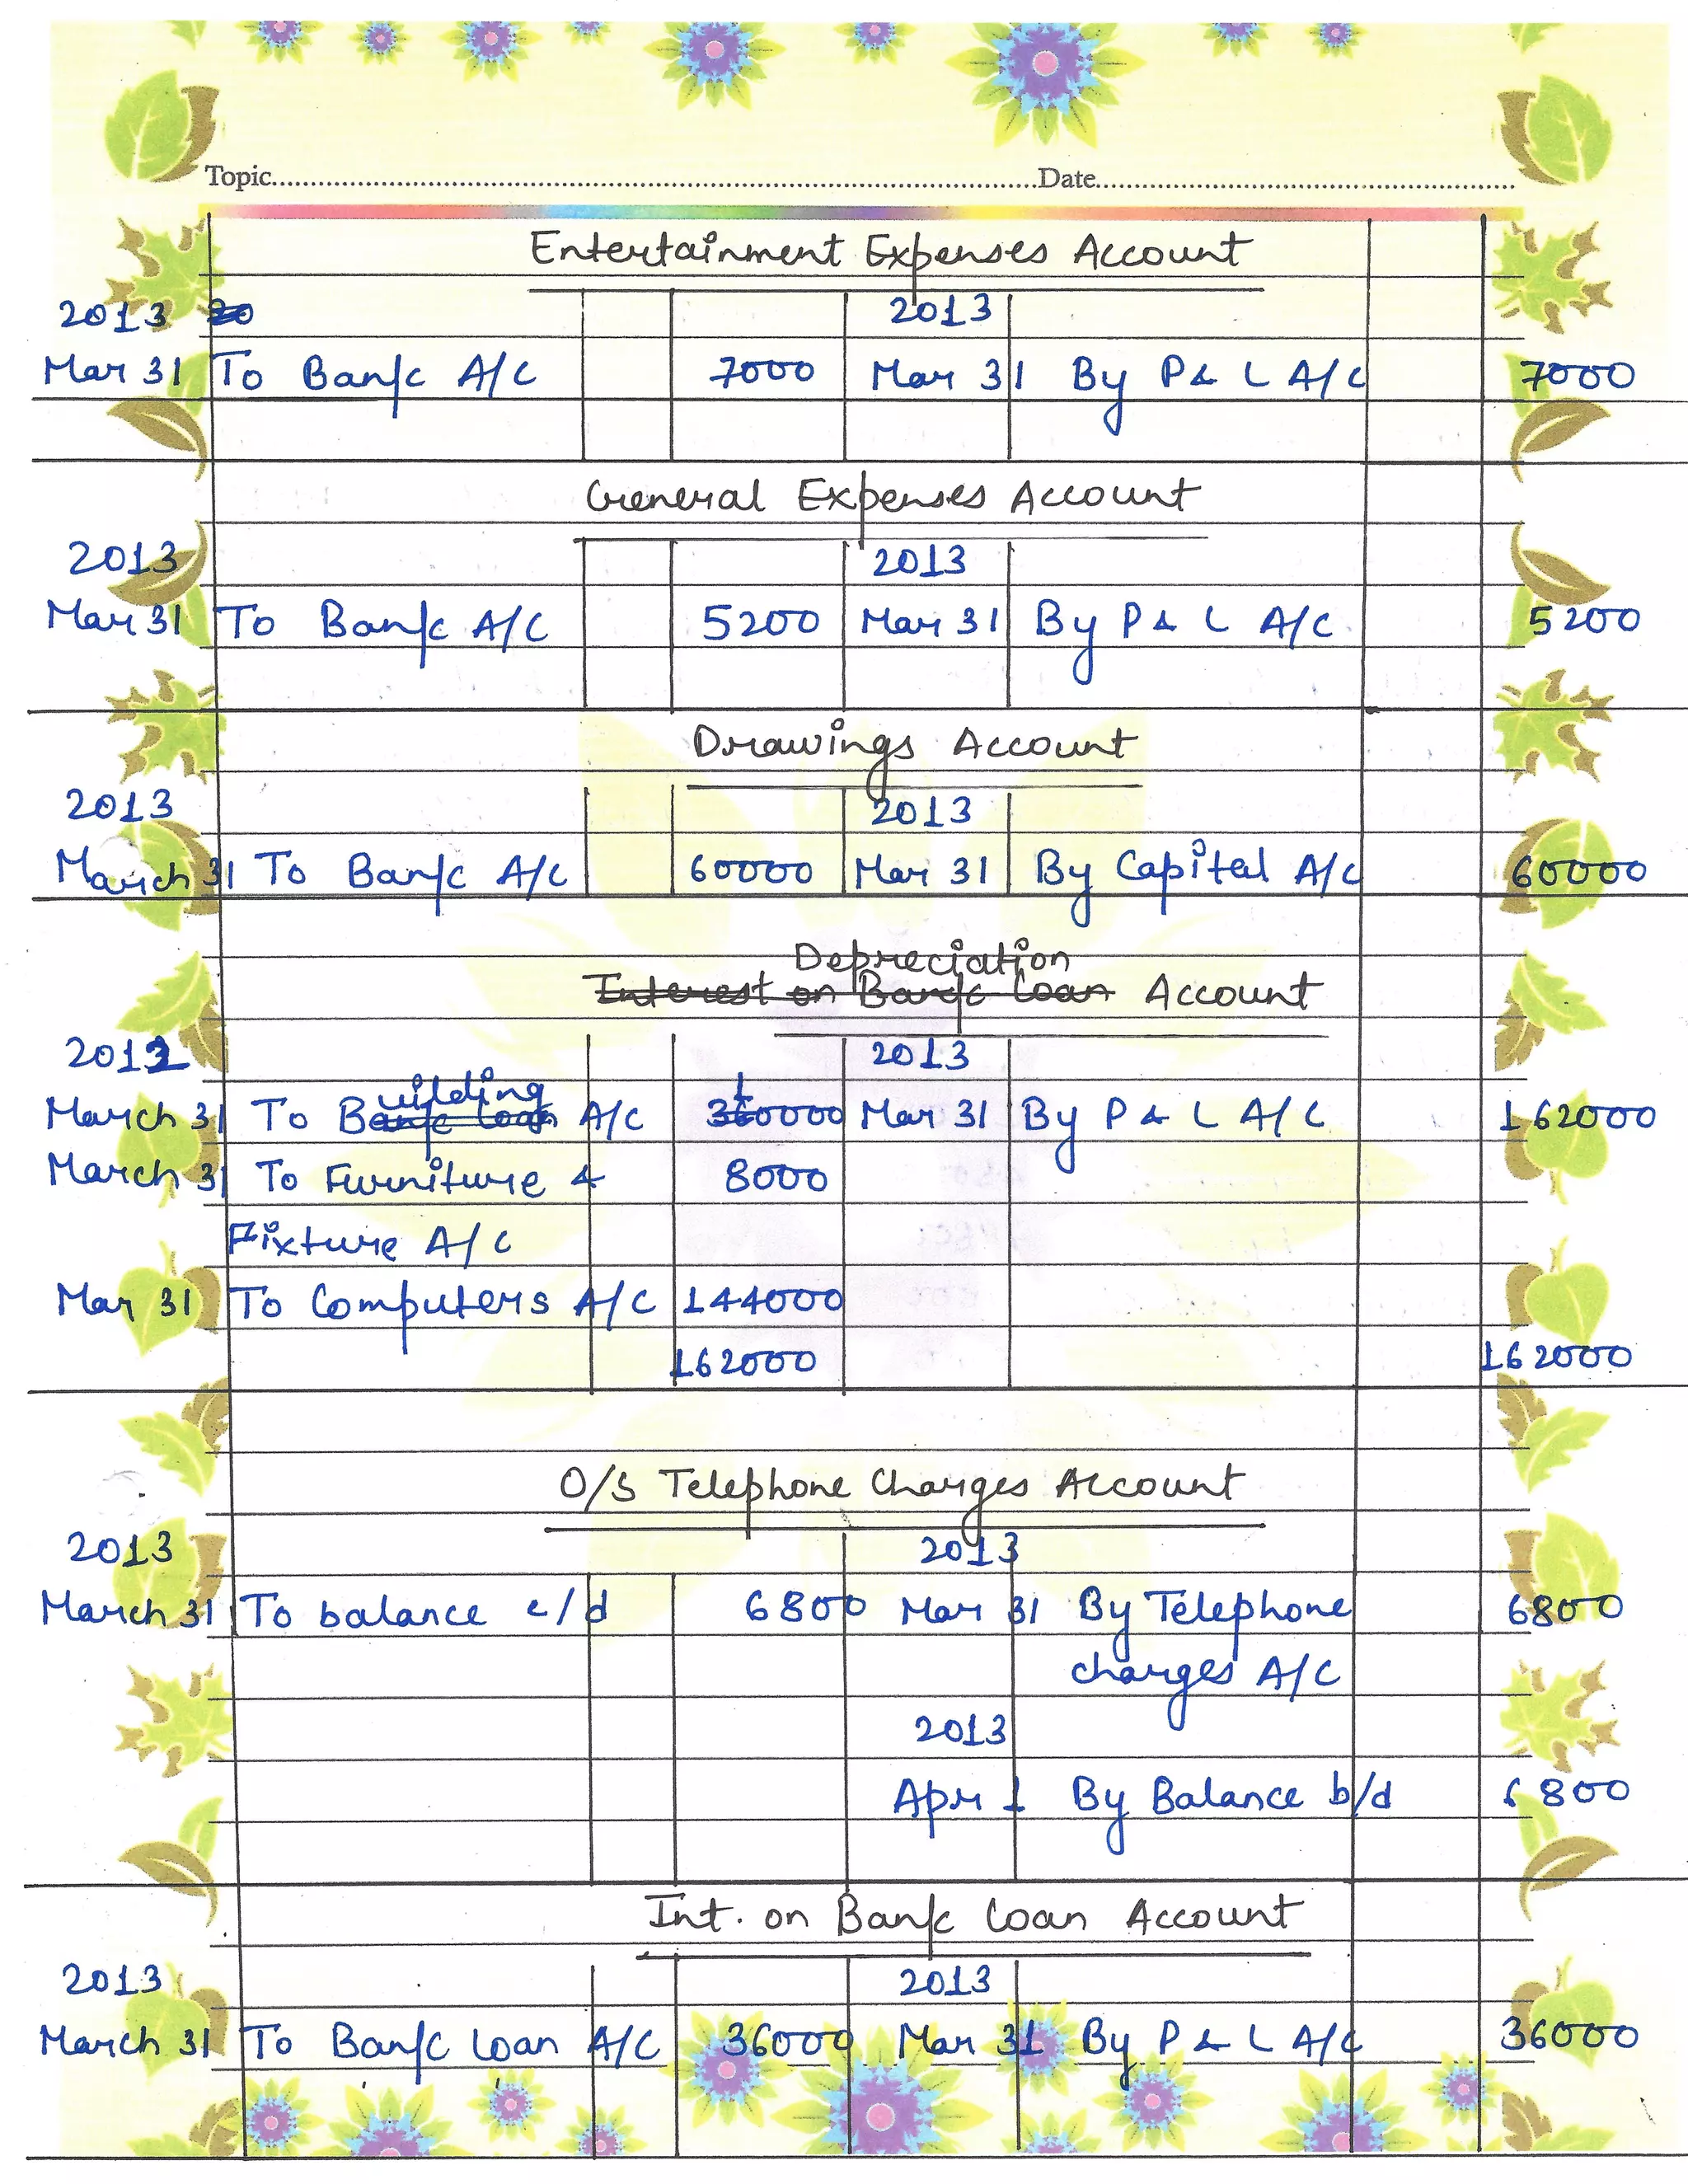 Topic Date
Entertainment Expenses Account
2013 2013
Mar 31 To Bank A/C 7000 Mar 31 By P & L A/C 7000
General Expenses Account
2013 2013
Mar 31 To Bank A/C 5200 Mar 31 By P & L A/C 5200
Drawings Account
2013 2013
March 31 To Bank A/C 60000 Mar 31 By Capital A/C 60000
Depreciation
Interest on Bank Loan Account
2013
March 31 To Building A/C Mar 31 By P & L A/C 162000
March 31 To Furniture & 8000
Fixture A/C
Mar 31 To Computers A/C 144000
162000 162000
O/S Telephone Charges Account
2013 2013
March 31 To balance c/d 6800 Mar 31 By Telephone 6800
charges A/C
2013
Apr 1 By Balance b/d 6800
Int. on Bank Loan Account
2013 2013
March 31 To Bank Loan A/C 36000 Mar 31 By P & L A/C 36000